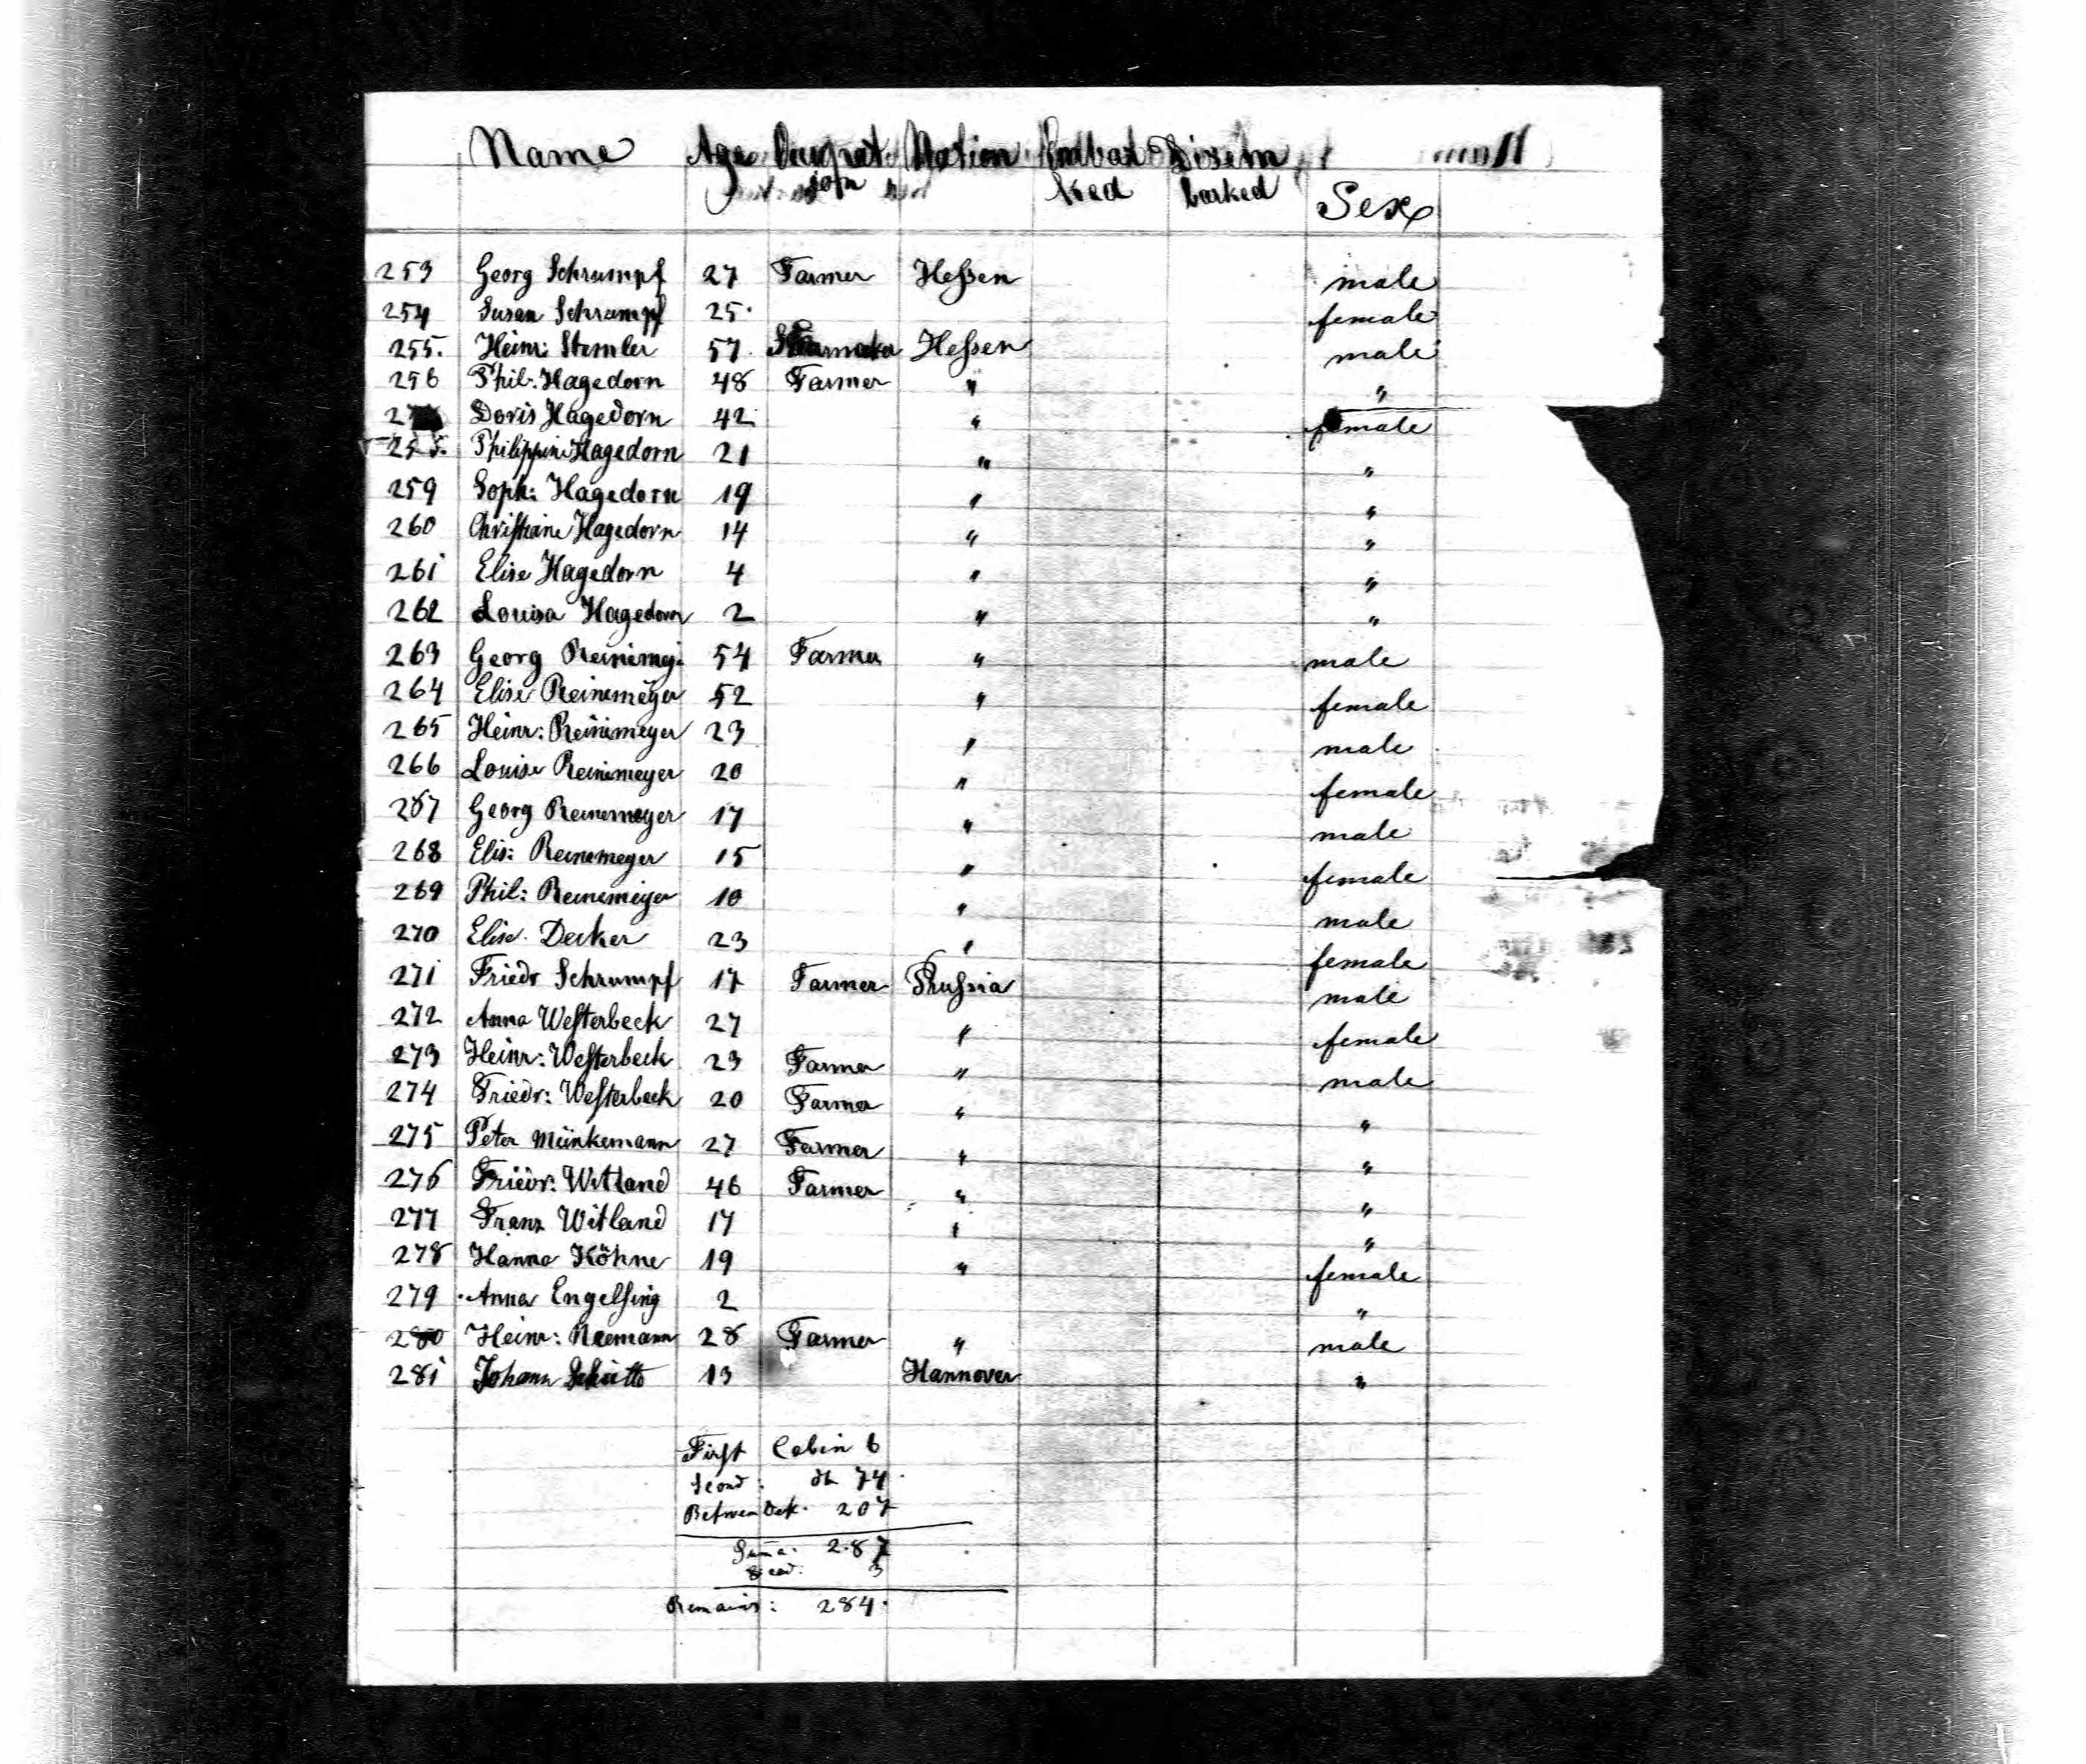 Name Age Occupat- Nation Embar- Disem
ion ked barked Sex
253 Georg Schrumpf 27 Farmer Heßen male
254 Susan Schrumpf 25 female
255. Heinr: Stemler 57 Heßen male
256 Phil: Hagedorn 48 Farmer " "
Doris Hagedorn 42 " female
Philippine Hagedorn 21 " "
259 Soph: Hagedorn 19 " "
260 Christiane Hagedorn 14 " "
261 Elise Hagedorn 4 " "
262 Louisa Hagedorn 2 " "
263 Georg Reinemey: 54 Farmer " male
264 Elise Reinemeyer 52 " female
265 Heinr: Reinemeyer 23 " male
266 Louise Reinemeyer 20 " female
267 Georg Reinemeyer 17 " male
268 Elis: Reinemeyer 15 " female
269 Phil: Reinemeyer 10 " male
270 Elise Decker 23 " female
271 Friedr Schrumpf 17 Farmer Prußia male
272 Anna Westerbeck 27 " female
273 Heinr: Westerbeck 23 Farmer " male
274 Friedr: Westerbeck 20 Farmer " "
275 Peter Münkemann 27 Farmer " "
276 Friedr: Witland 46 Farmer " "
277 Franz Witland 17 " "
278 Hanna Köhne 19 " female
279 Anna Engelsing 2 "
280 Heinr: Niemann 28 Farmer " male
281 Johann Schütte 13 Hannover "
First Cabin 6
Second: do 74
Between Dek. 207
Suma: 287
Dead: 3
Remains: 284.